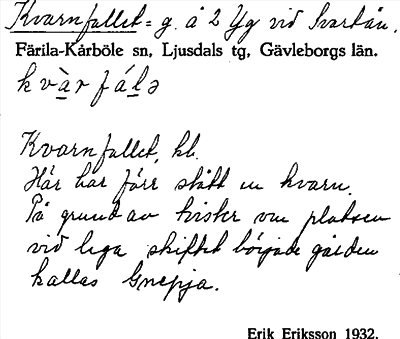 Kvarnfallet = g. å 2 Yg vid Svartån.
Färila-Kårböle sn, Ljusdals tg, Gävleborgs län.
kvàrfálə
Kvarnfallet, kb.
Här har förr stått en kvarn.
På grund av tvister om platsen
vid laga skiftet började gården
kallas Gnepja.
Erik Eriksson 1932.